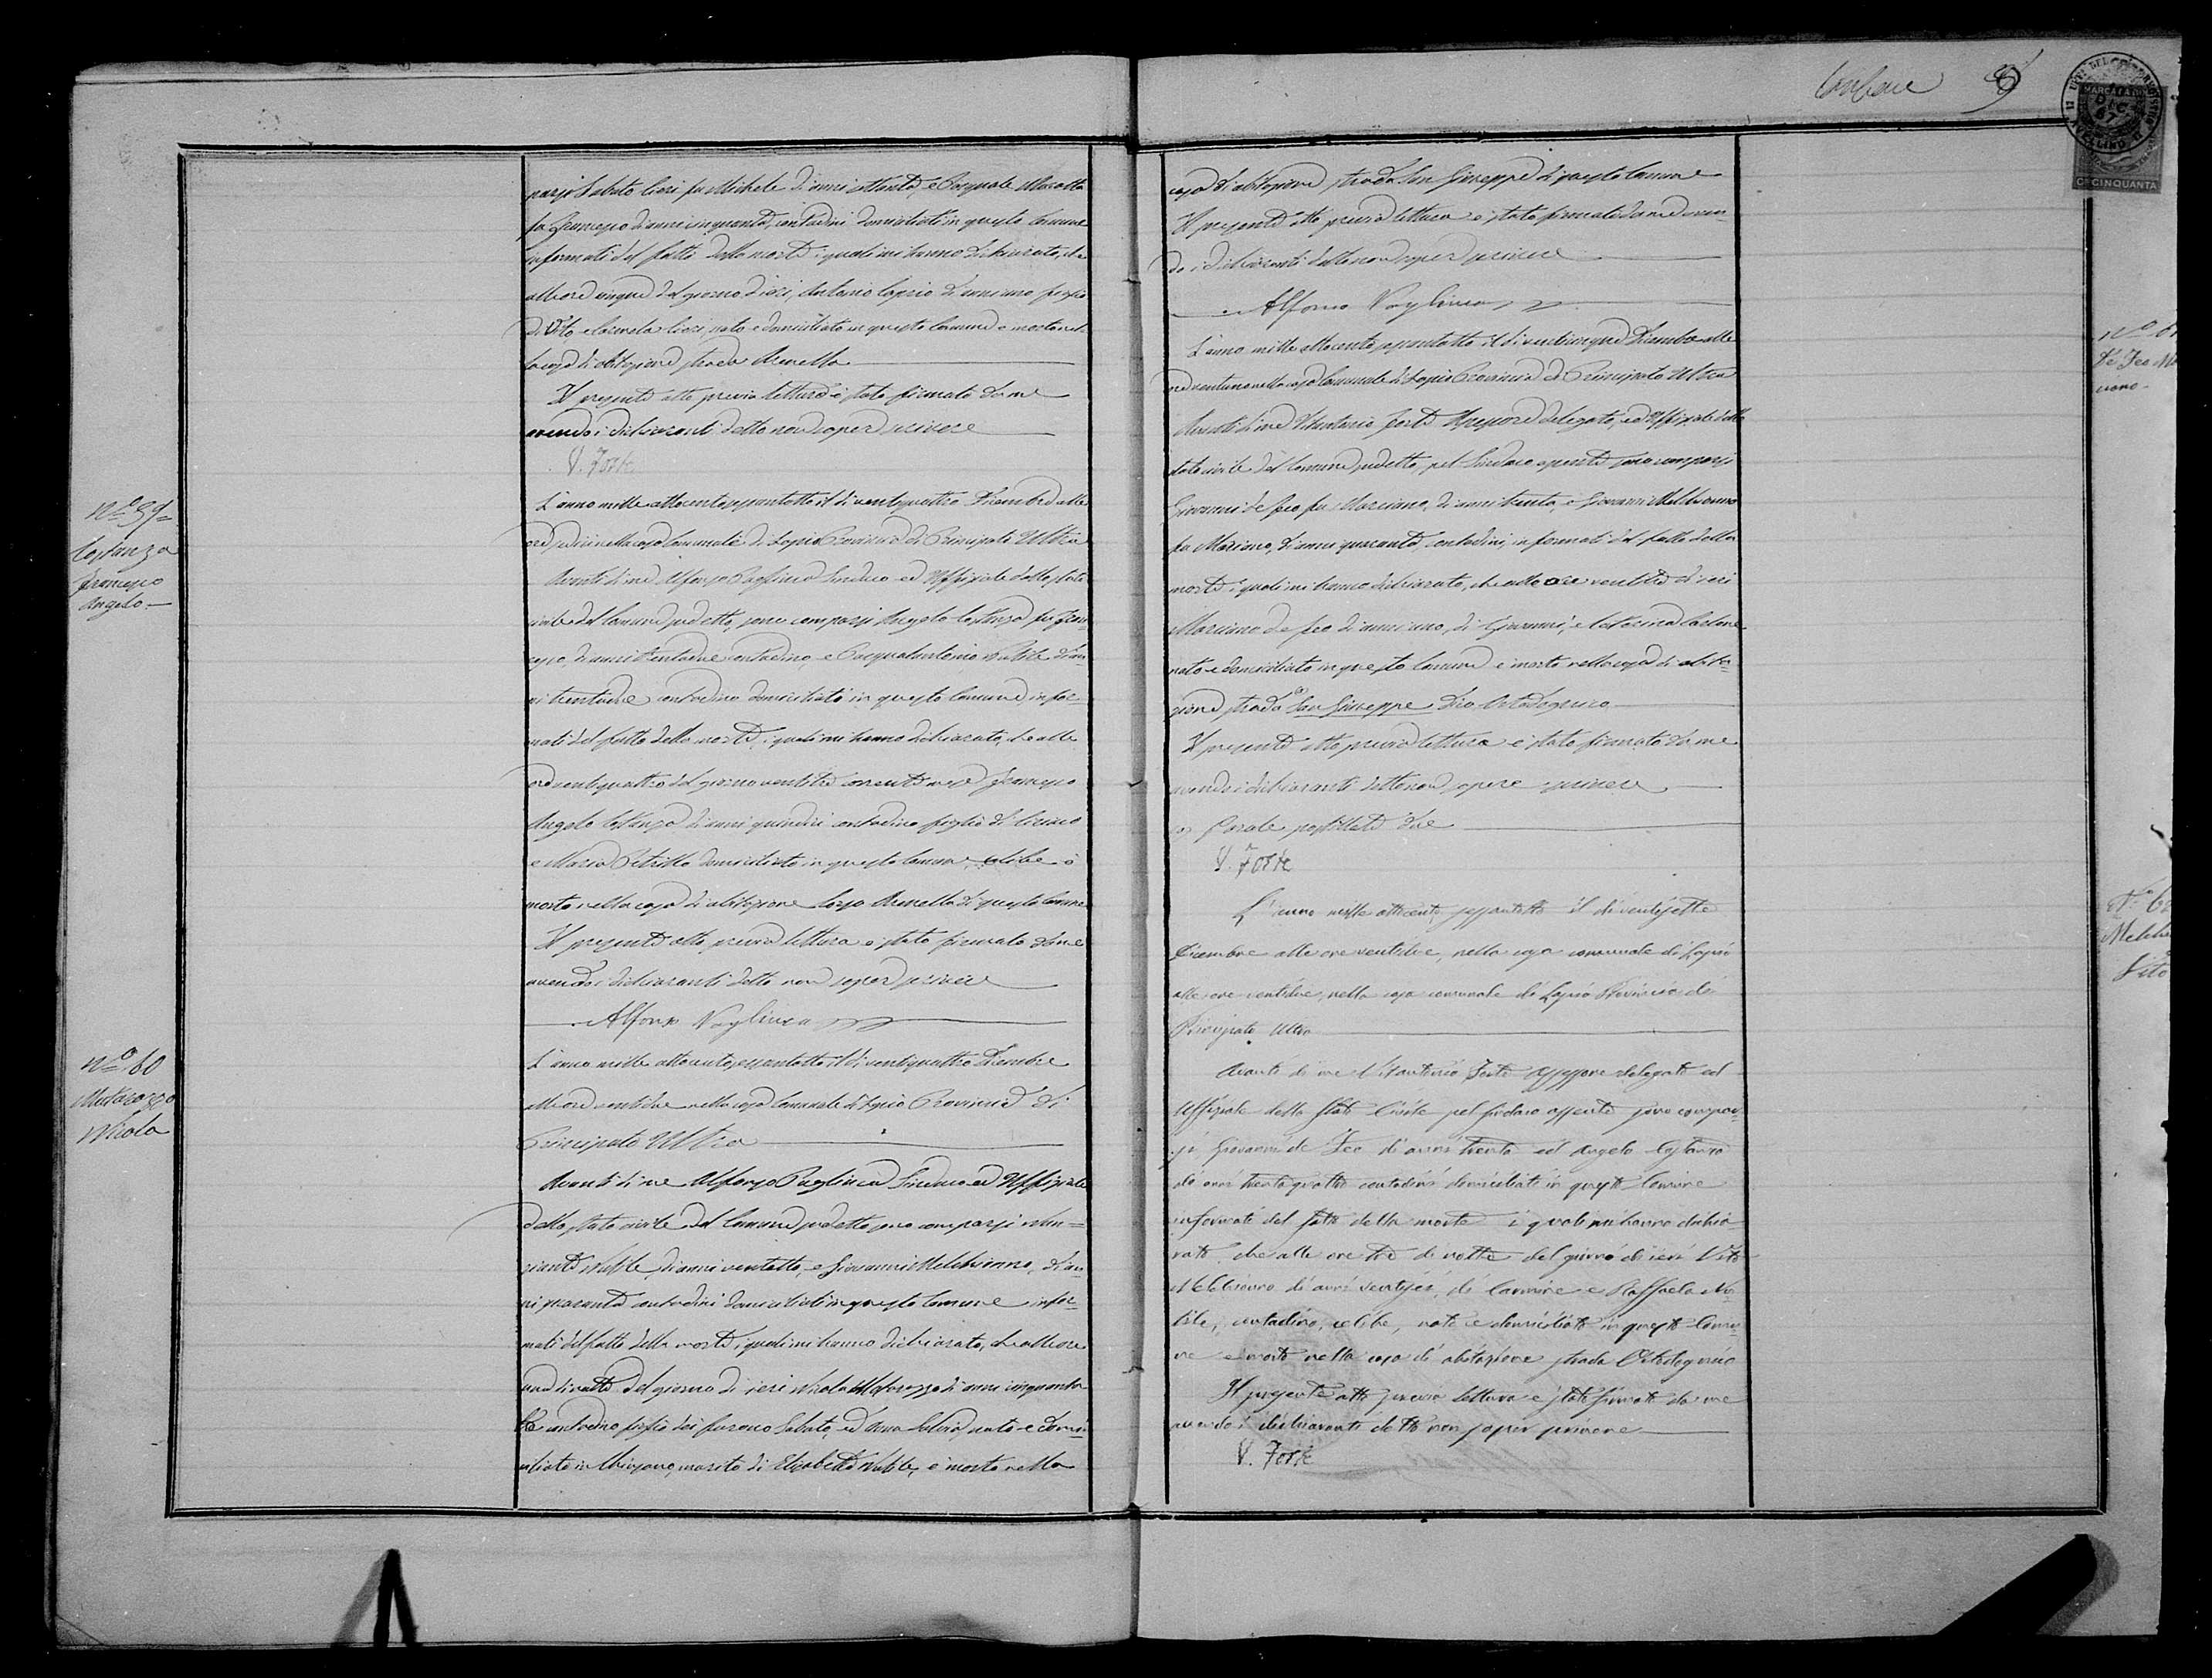 parsi Sabato Cieri fu Michele di anni ottanta, e Pasquale Moscato
fu Francesco di anni cinquanta, contadini domiciliati in questo Comune
informati del fatto della morte i quali mi hanno dichiarato, che
alle ore cinque del giorno di ieri, Antonio Caprio di anni uno figlio
di Vito e Carmela Cieri, nato e domiciliato in questo Comune è morto nel-
la casa di abitazione strada Arenella
Il presente atto previa lettura è stato firmato da me
avendo i dichiaranti detto non saper scrivere
V. Forte
No 59=
Costanza
Francesco
Angelo.—
L'anno mille ottocento sessantotto il dì ventiquattro Dicembre alle
ore sedici nella casa Comunale di Lapio Provincia di Principato Ultra
Avanti di me Alfonso Pagliuca Sindaco ed Uffiziale dello stato
civile del Comune sudetto, sono comparsi Angelo Costanza fu Fran-
cesco, di anni trentadue contadino, e Pasqualantonio Nubile d'an-
ni trentadue contadino domiciliati in questo Comune, infor-
mati del fatto della morte, i quali mi hanno dichiarato, che alle
ore ventiquattro del giorno ventitre corrente mese Francesco
Angelo Costanza di anni quindici contadino figlio di Ciriaco
e Maria Petrillo domiciliato in questo Comune, celibe è
morto nella casa di abitazione largo Arenella di questo Comune
Il presente atto previa lettura è stato firmato da me
avendo i dichiaranti detto non saper scrivere
Alfonso Pagliuca
No 60
Matarazzo
Nicola
L'anno mille ottocento sessantotto il dì ventiquattro Dicembre
alle ore ventidue nella casa Comunale di Lapio Provincia di
Principato Ultra
Avanti di me Alfonso Pagliuca Sindaco ed Uffiziale
dello stato civile del Comune sudetto sono comparsi Nun-
ziante Nubile, di anni ventotto, e Giovanni Melchionno, di an-
ni quaranta contadini domiciliati in questo Comune infor-
mati del fatto della morte, i quali mi hanno dichiarato, che alle ore
una di notte del giorno di ieri Nicola Matarazzo di anni cinquanta-
contadino figlio dei furono Sabato, ed Anna nato e domi-
ciliato in Chiusano, marito di Elisabetta Nubile, è morto nella
casa di abitazione strada San Giuseppe di questo Comune
Il presente atto previa lettura è stato firmato da me aven-
do i dichiaranti detto non saper scrivere
Alfonso Pagliuca
No 61
De Feo Mar
L'anno mille ottocento sessantotto il dì venticinque Dicembre alle
ore ventuno nella casa Comunale di Lapio Provincia di Principato Ultra
Avanti di me Vitantonio Forte Assessore delegato, ed Uffiziale dello
stato civile del Comune sudetto, pel Sindaco assente sono comparsi
Giovanni de Feo fu Marciano, di anni trenta, e Giovanni Melchionno
fu Mariano, di anni quaranta, contadini, informati del fatto della
morte i quali mi hanno dichiarato, che alle ore ventitre di ieri
Marciano de Feo di anni uno, di Giovanni, e Caterina Carbone
nato e domiciliato in questo Comune è morto nella casa di abita-
zione strada San Giuseppe
Il presente atto previa lettura è stato firmato da me
avendo i dichiaranti detto non sapere scrivere
Parole postillate due
V. Forte
No 62
Melchi
Vito
L'anno mille ottocento sessantotto il dì ventisette
Dicembre alle ore ventidue, nella casa comunale di Lapio
alle ore ventidue, nella casa comunale di Lapio Provincia di
Principato Ultra
Avanti di me Vitantonio Forte Assessore delegato ed
Uffiziale dello Stato Civile pel Sindaco assente sono compar-
si Giovanni de Feo di anni trenta ed Angelo Costanza
di anni trentaquattro contadini domiciliati in questo Comune
informati del fatto della morte i quali mi hanno dichia-
rato che alle ore tre di notte del giorno di ieri Vito
Melchionno di anni ventisei, di Carmine e Raffaela Nu-
bile, contadino, celibe, nato e domiciliato in questo Comu-
ne è morto nella casa di abitazione strada
Il presente atto previa lettura è stato firmato da me
avendo i dichiaranti detto non saper scrivere
V. Forte
MARCA DA
DIC
67
AVELLINO
C. CINQUANTA